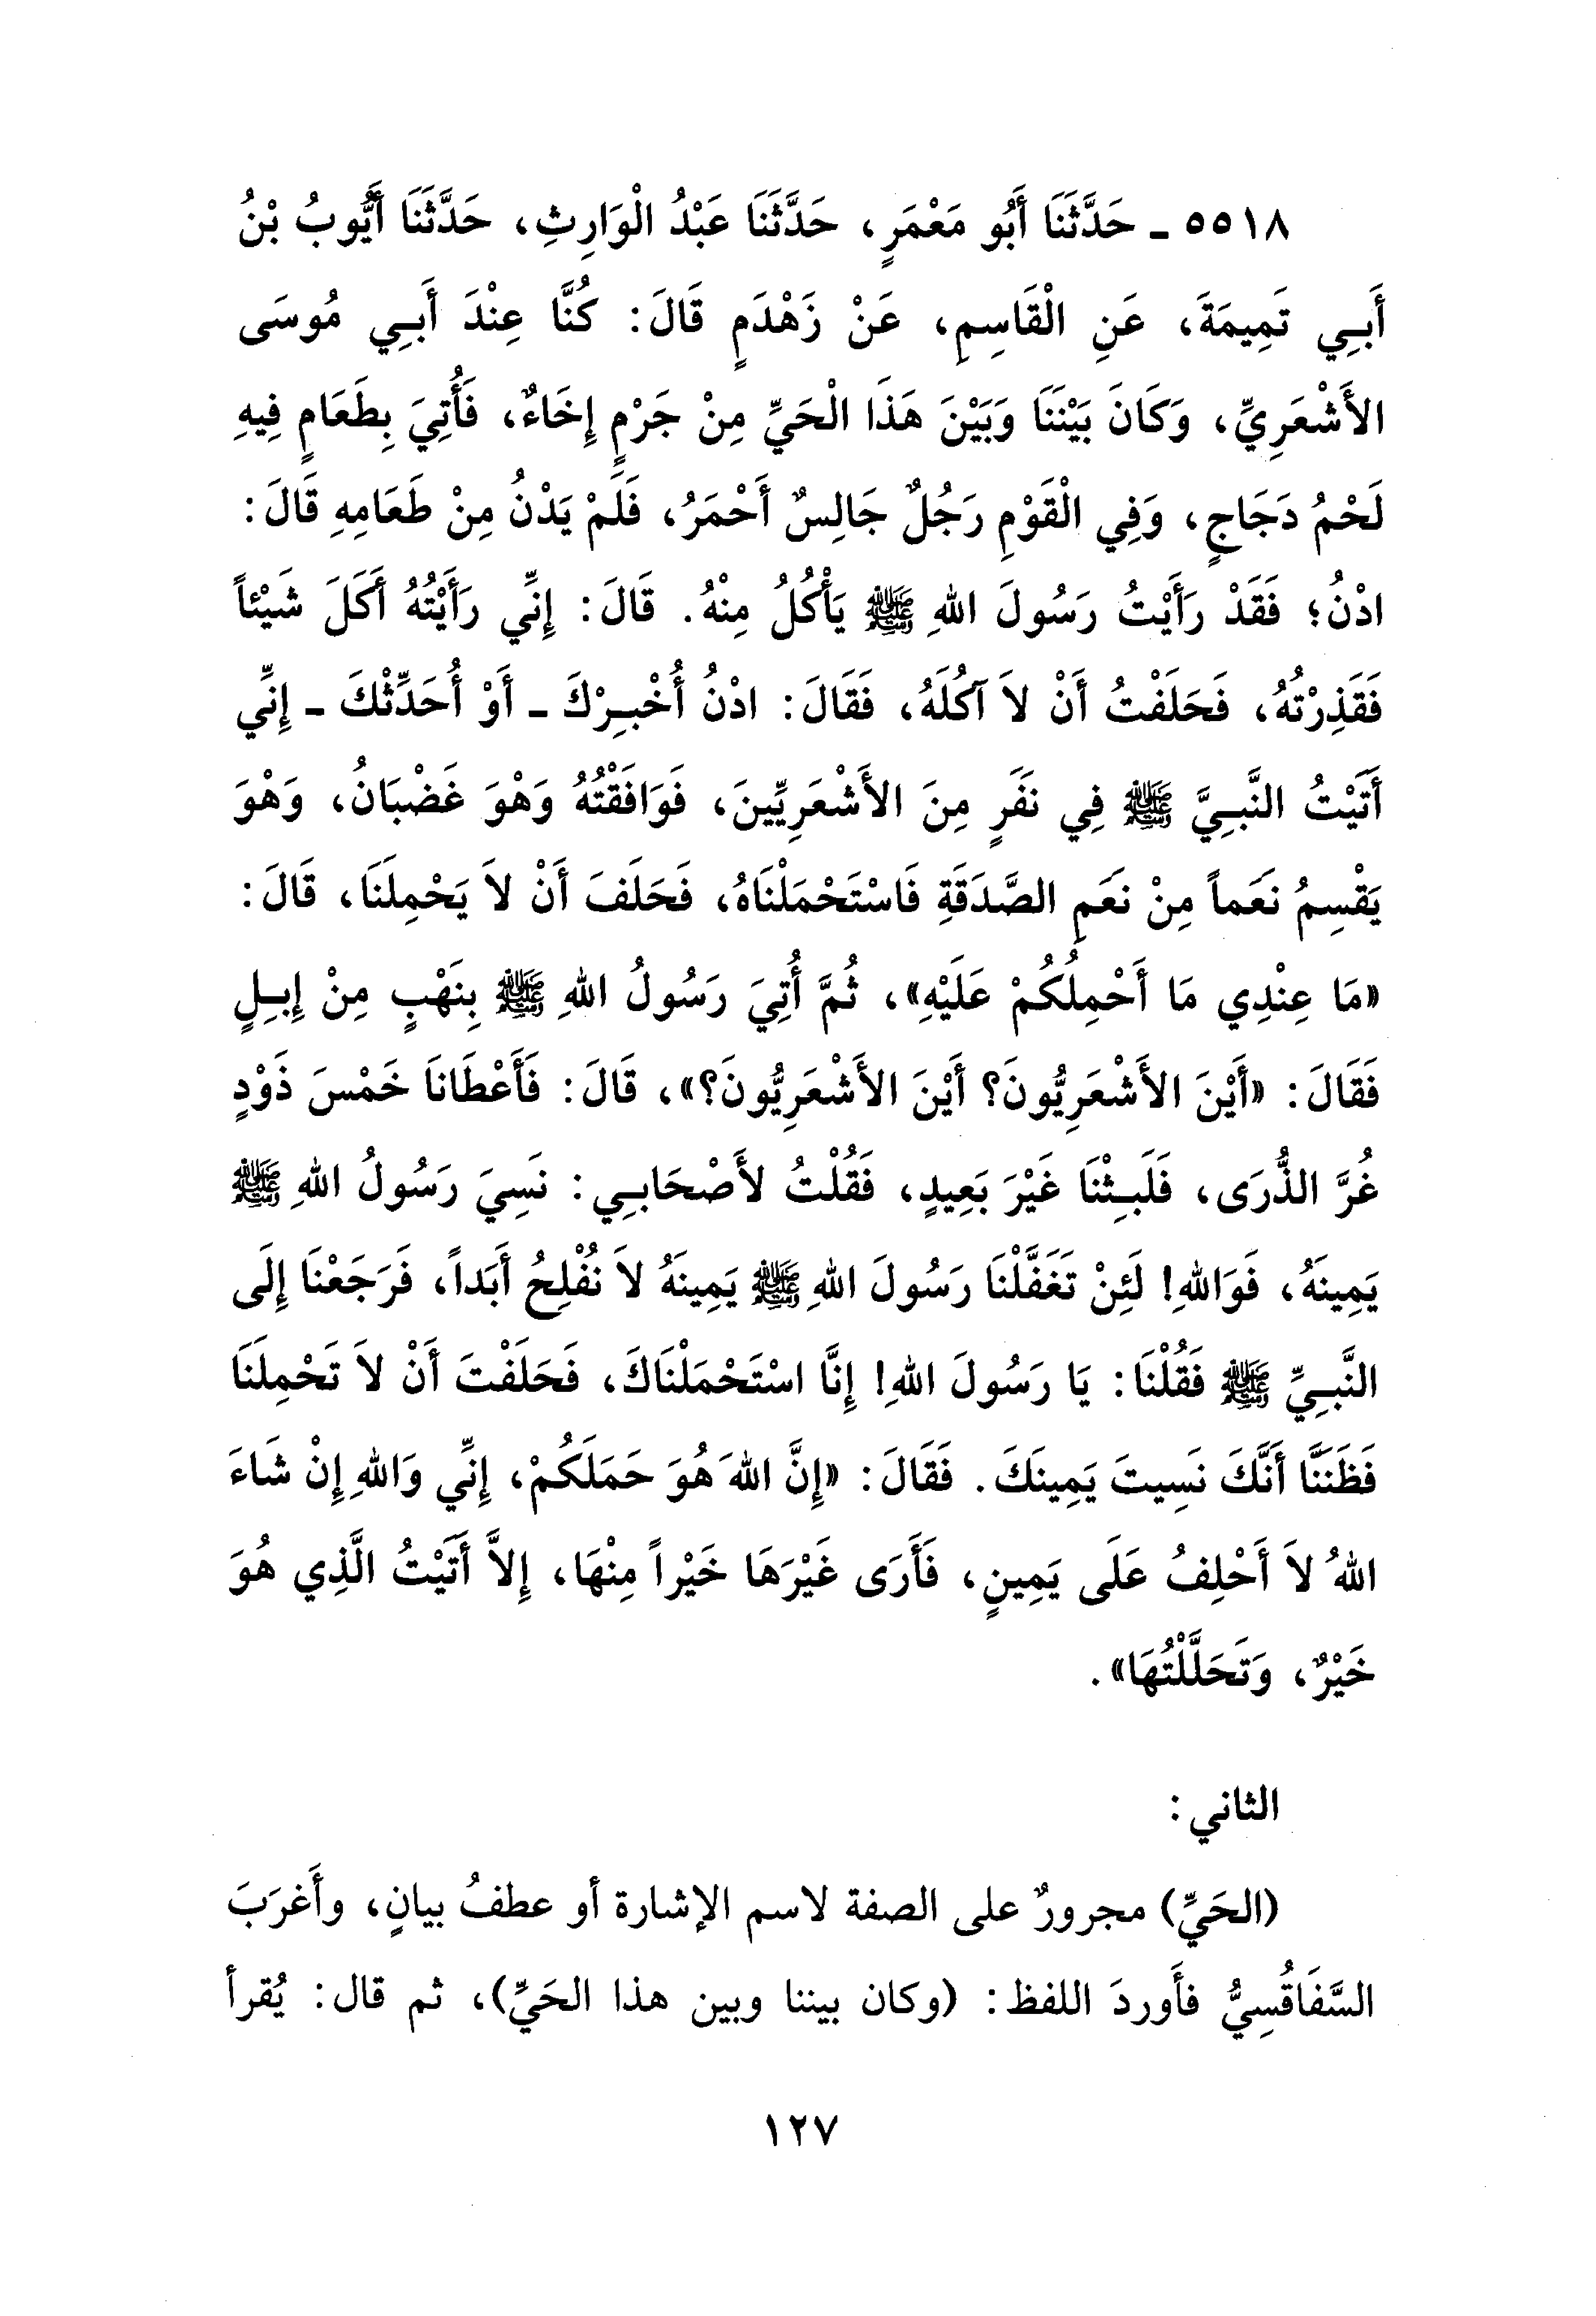 ٥٥١٨ - حَدَّثَنَا أَبُو مَعْمَرٍ، حَدَّثَنَا عَبْدُ الْوَارِثِ، حَدَّثَنَا أَيُّوبُ بْنُ
أَبِي تَمِيمَةَ، عَنِ الْقَاسِمِ، عَنْ زَهْدَمٍ قَالَ: كُنَّا عِنْدَ أَبِي مُوسَى
الأَشْعَرِيِّ، وَكَانَ بَيْنَنَا وَبَيْنَ هَذَا الْحَيِّ مِنْ جَرْمٍ إِخَاءٌ، فَأُتِيَ بِطَعَامٍ فِيهِ
لَحْمُ دَجَاجٍ، وَفِي الْقَوْمِ رَجُلٌ جَالِسٌ أَحْمَرُ، فَلَمْ يَدْنُ مِنْ طَعَامِهِ قَالَ:
ادْنُ؛ فَقَدْ رَأَيْتُ رَسُولَ اللهِ ﷺ يَأْكُلُ مِنْهُ. قَالَ: إِنِّي رَأَيْتُهُ أَكَلَ شَيْئاً
فَقَذِرْتُهُ، فَحَلَفْتُ أَنْ لاَ آكُلَهُ، فَقَالَ: ادْنُ أُخْبِرْكَ - أَوْ أُحَدِّثْكَ - إِنِّي
أَتَيْتُ النَّبِيَّ ﷺ فِي نَفَرٍ مِنَ الأَشْعَرِيِّينَ، فَوَافَقْتُهُ وَهْوَ غَضْبَانُ، وَهْوَ
يَقْسِمُ نَعَماً مِنْ نَعَمِ الصَّدَقَةِ فَاسْتَحْمَلْنَاهُ، فَحَلَفَ أَنْ لاَ يَحْمِلَنَا، قَالَ:
«مَا عِنْدِي مَا أَحْمِلُكُمْ عَلَيْهِ»، ثُمَّ أُتِيَ رَسُولُ اللهِ ﷺ بِنَهْبٍ مِنْ إِبِلٍ
فَقَالَ: «أَيْنَ الأَشْعَرِيُّونَ؟ أَيْنَ الأَشْعَرِيُّونَ؟»، قَالَ: فَأَعْطَانَا خَمْسَ ذَوْدٍ
غُرَّ الذُّرَى، فَلَبِثْنَا غَيْرَ بَعِيدٍ، فَقُلْتُ لأَصْحَابِي: نَسِيَ رَسُولُ اللهِ ﷺ
يَمِينَهُ، فَوَاللهِ! لَئِنْ تَغَفَّلْنَا رَسُولَ اللهِ ﷺ يَمِينَهُ لاَ نُفْلِحُ أَبَداً، فَرَجَعْنَا إِلَى
النَّبِيِّ ﷺ فَقُلْنَا: يَا رَسُولَ اللهِ! إِنَّا اسْتَحْمَلْنَاكَ، فَحَلَفْتَ أَنْ لاَ تَحْمِلَنَا
فَظَنَنَّا أَنَّكَ نَسِيتَ يَمِينَكَ. فَقَالَ: «إِنَّ اللهَ هُوَ حَمَلَكُمْ، إِنِّي وَاللهِ إِنْ شَاءَ
اللهُ لاَ أَحْلِفُ عَلَى يَمِينٍ، فَأَرَى غَيْرَهَا خَيْراً مِنْهَا، إِلاَّ أَتَيْتُ الَّذِي هُوَ
خَيْرٌ، وَتَحَلَّلْتُهَا».
الثاني:
(الحَيِّ) مجرورٌ على الصفة لاسم الإشارة أو عطفُ بيانٍ، وأَغرَبَ
السَّفَاقُسِيُّ فأَوردَ اللفظ: (وكان بيننا وبين هذا الحَيِّ)، ثم قال: يُقرأ
١٢٧